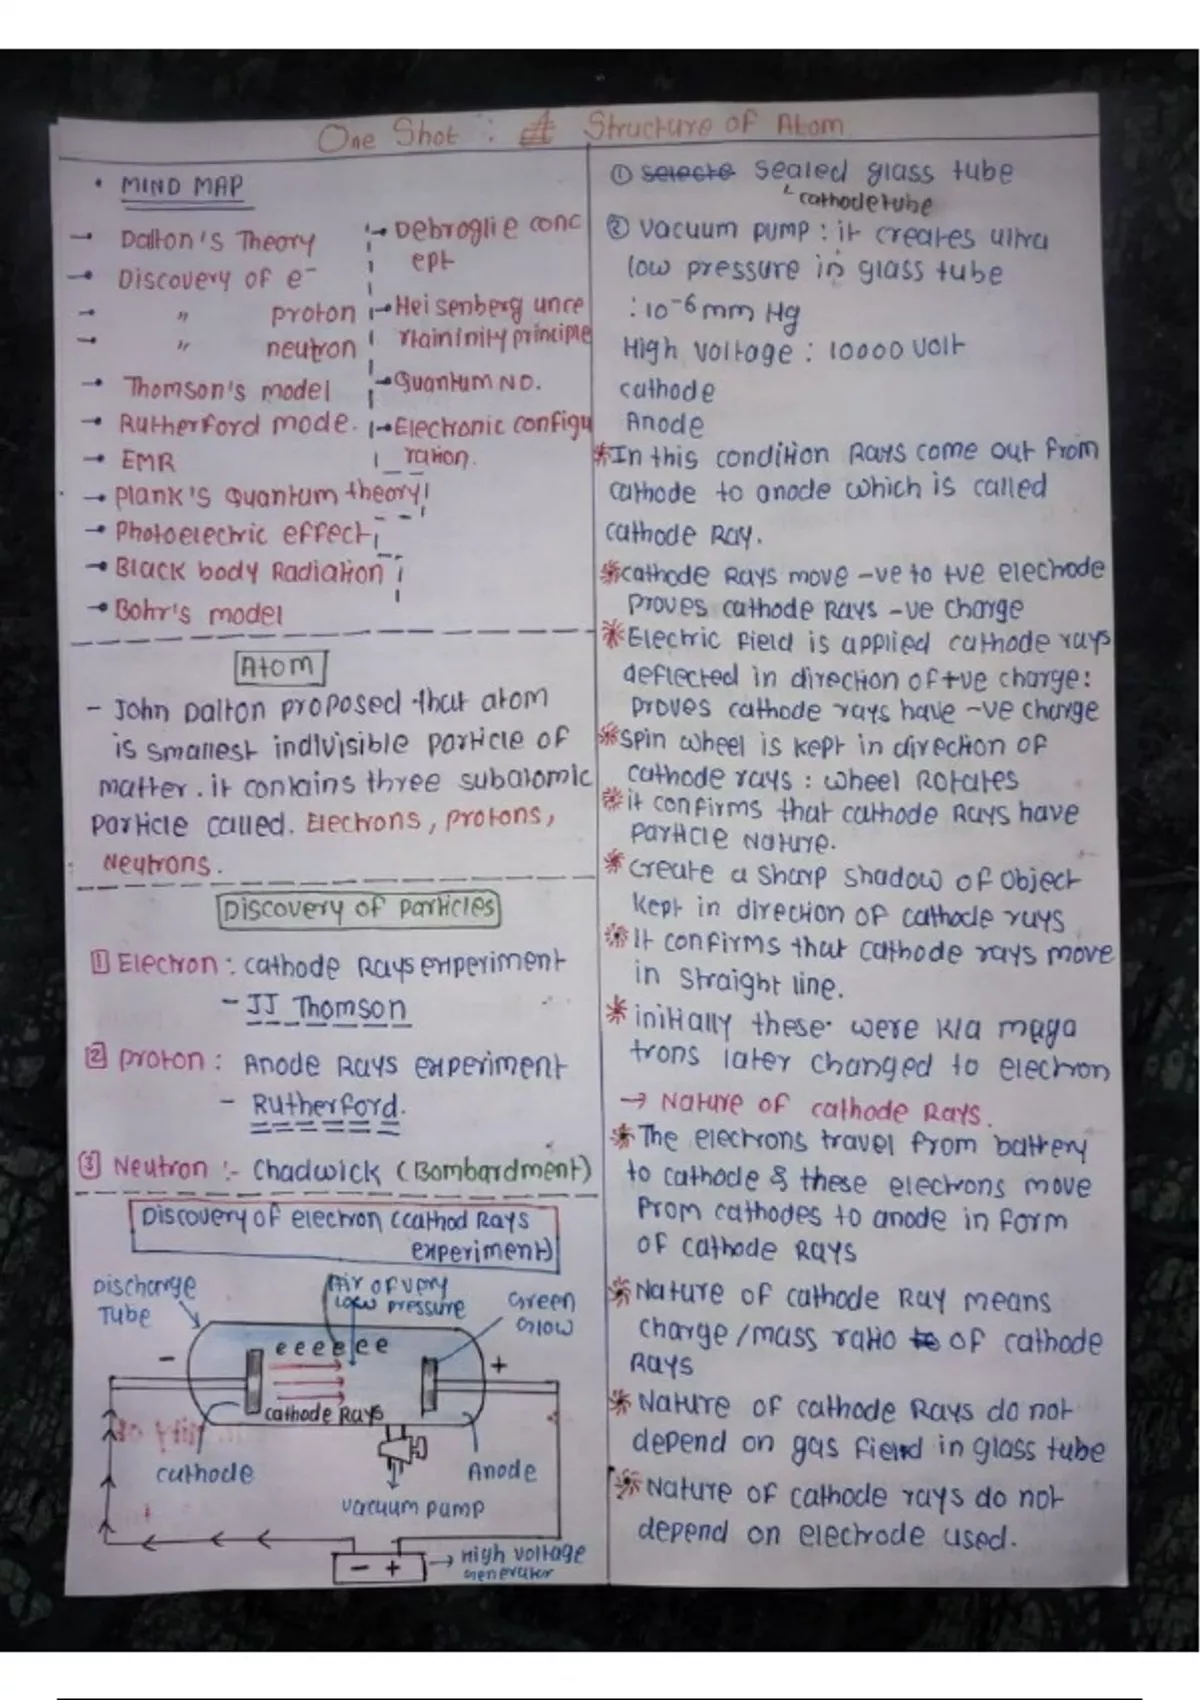 One Shot : Structure of Atom
• MIND MAP
→ Dalton's Theory
→ Discovery of e⁻
→ " proton
→ " neutron
→ Thomson's model
→ Rutherford mode.
→ EMR
→ Plank's Quantum theory
→ Photoelectric effect
→ Black body Radiation
→ Bohr's model
→ Debroglie conc
ept
→ Heisenberg unce
rtaininity principle
→ Quantum NO.
→ Electronic configu
ration.
Atom
- John Dalton proposed that atom
is smallest indivisible particle of
matter. it contains three subatomic
particle called. Electrons, protons,
Neutrons.
Discovery of particles
1 Electron : cathode Rays experiment
- JJ Thomson
2 proton : Anode Rays experiment
- Rutherford.
3 Neutron :- Chadwick (Bombardment)
Discovery of electron (cathod Rays
experiment)
Discharge
Tube
Air of very
low pressure
Green
Glow
e e e e e e
-
+
cathode Rays
cathode
Anode
vacuum pump
- +
→ High voltage
Generator
① selecte sealed glass tube
cathode tube
② vacuum pump : it creates ultra
low pressure in glass tube
: 10⁻⁶ mm Hg
High voltage : 10000 volt
cathode
Anode
* In this condition Rays come out from
cathode to anode which is called
cathode Ray.
* cathode Rays move -ve to +ve electrode
proves cathode Rays -ve charge
* Electric field is applied cathode rays
deflected in direction of +ve charge:
proves cathode rays have -ve charge
* spin wheel is kept in direction of
cathode rays : wheel Rotates
* it confirms that cathode Rays have
particle nature.
* create a sharp shadow of object
kept in direction of cathode rays
* It confirms that cathode rays move
in straight line.
* initially these were k/a maga
trons later changed to electron
→ Nature of cathode Rays.
* The electrons travel from battery
to cathode & these electrons move
from cathodes to anode in form
of cathode Rays
* Nature of cathode Ray means
charge/mass ratio of cathode
Rays
* Nature of cathode Rays do not
depend on gas in glass tube
* Nature of cathode rays do not
depend on electrode used.